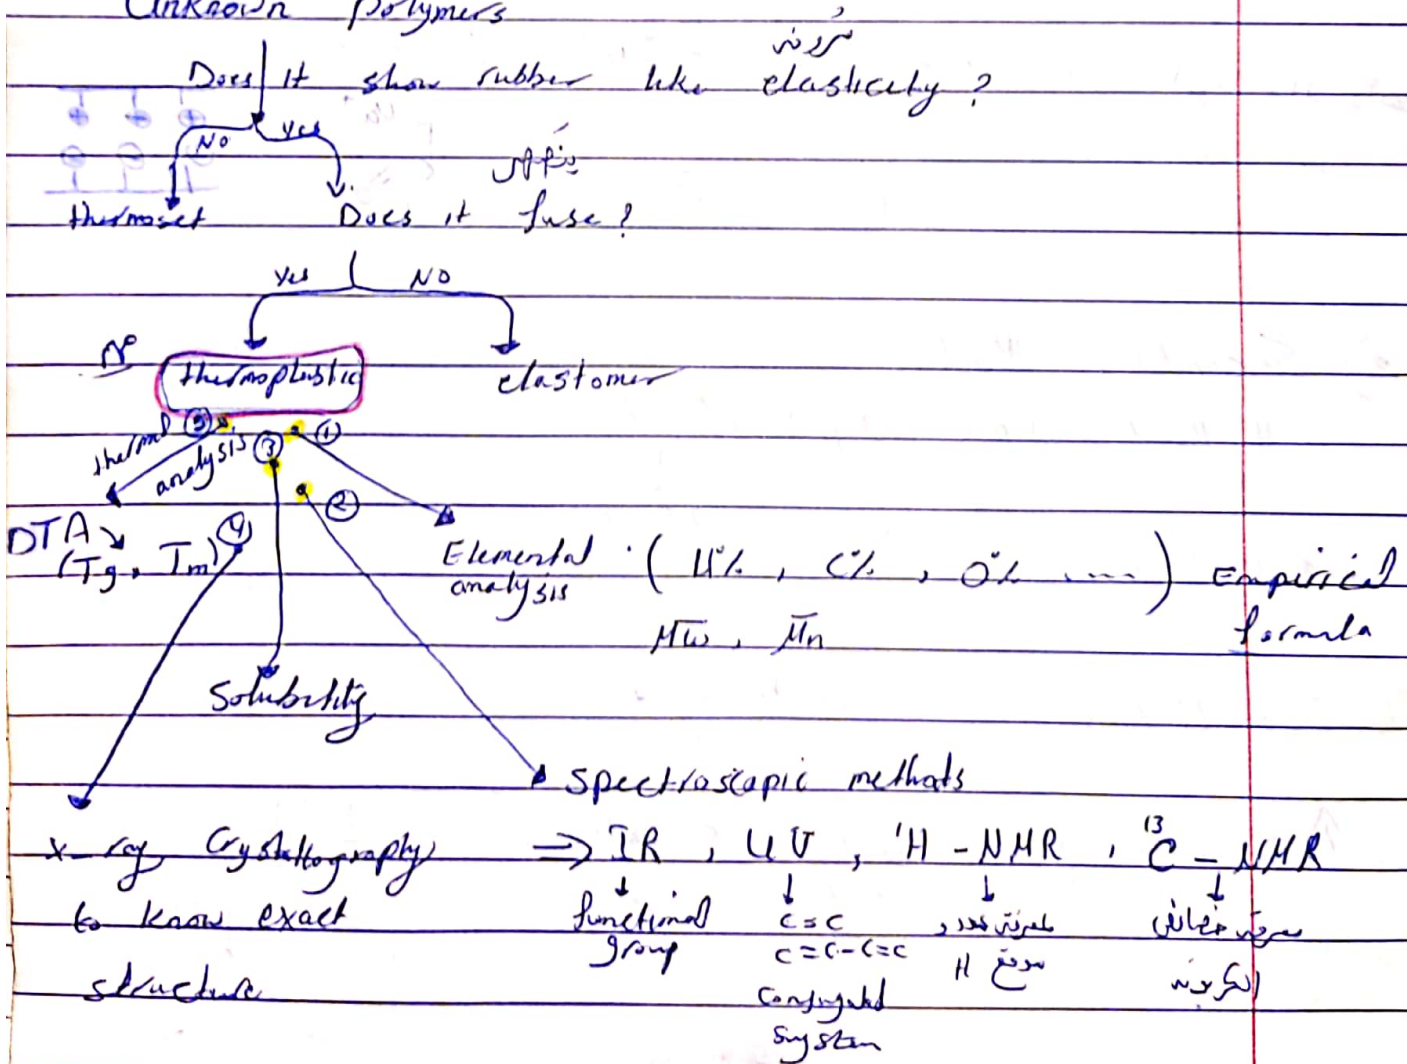 Unknown polymers
مرونة
Does it show rubber like elasticity?
No Yes
ينصهر
thermoset Does it fuse?
Yes NO
thermoplastic elastomer
thermal ⑤ ③ ①
analysis
②
DTA ④
(Tg, Tm) Elemental analysis (H%, C%, O% ....) Empirical formula
M̅w, M̅n
Solubility
spectroscopic methods
x-ray Crystallography ⇒ IR, UV, ¹H-NMR, ¹³C-NMR
to know exact structure
functional group
C=C
C=C-C=C
conjugated system
لمعرفة عدد و
موقع H
معرفة خصائص
الكربونة